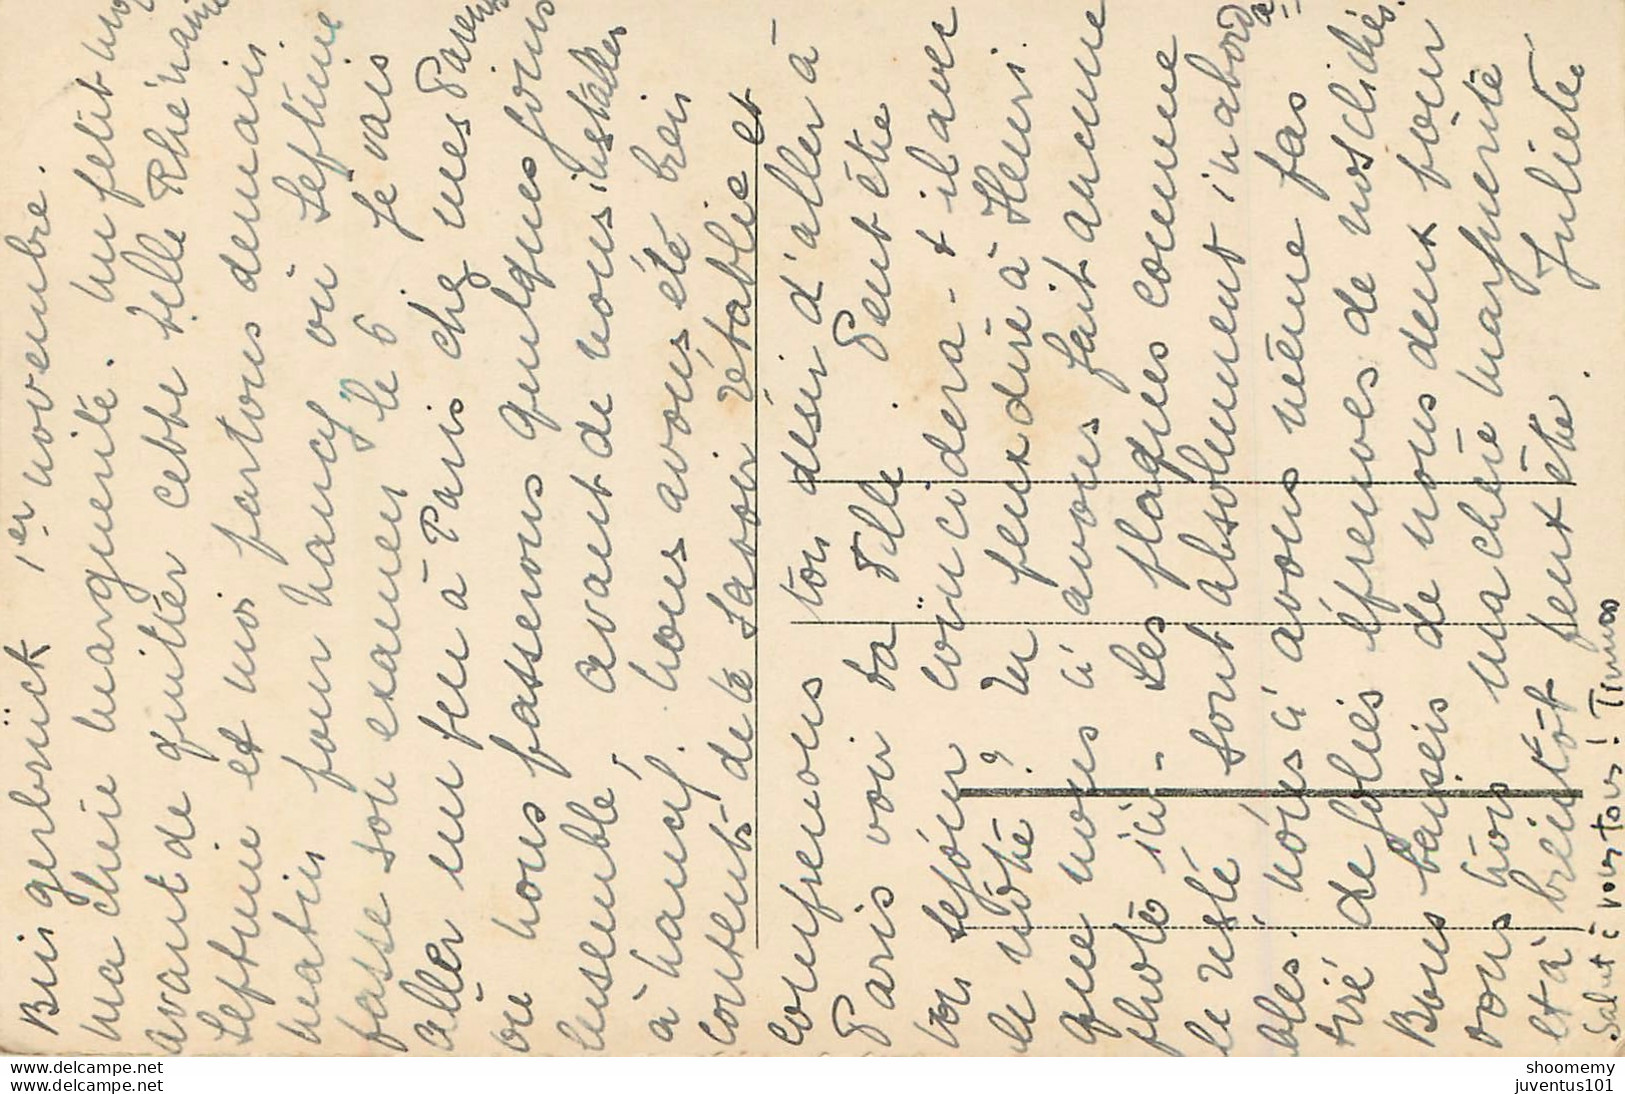 Bin gerbrück 1er novembre.
ma chère marguerite. un petit mot
avant de quitter cette belle Rhénanie
Leftime et moi partons demain
matin pour nancy où Leftime
passe son examen le 6 je vais
aller un peu à Paris chez mes Parents
où nous passerons quelques jours
ensemble, avant de nous installer
à nancy. nous avons été bien
contents de te savoir rétablie et
comprenons ton désir d'aller à
Paris voir ta fille. Peut être
ton séjour coïncidera-t il avec
le nôtre? Tu peux dire à Henri
que nous n'avons fait aucune
photo ici - Les plaques comme
le reste sont absolument inaborda-
bles. nous n'avons même pas
tiré de jolies épreuves de nos clichés.
Bons baisers de nous deux pour
vous trois ma chère marguerite
et à bientôt peut être. Juliette
Salut à vous tous! Timoss
delcampe.net
delcampe.net
shoomemy
juventus101